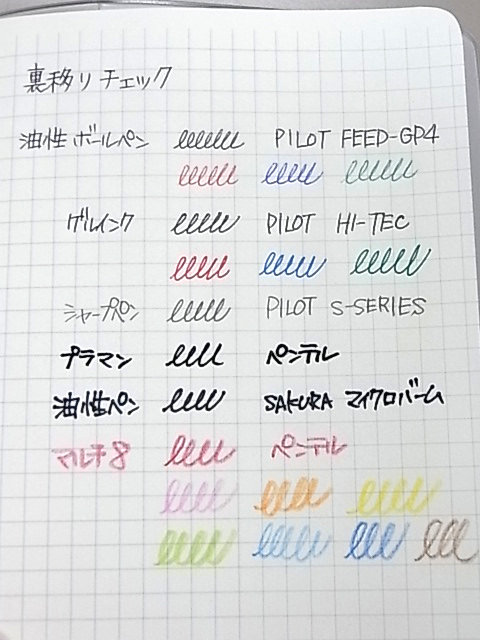 裏移りチェック
油性ボールペン PILOT FEED-GP4
ゲルインク PILOT HI-TEC
シャープペン PILOT S-SERIES
プラマン ぺんてる
油性ペン SAKURA マイクロパーム
マルチ8 ぺんてる